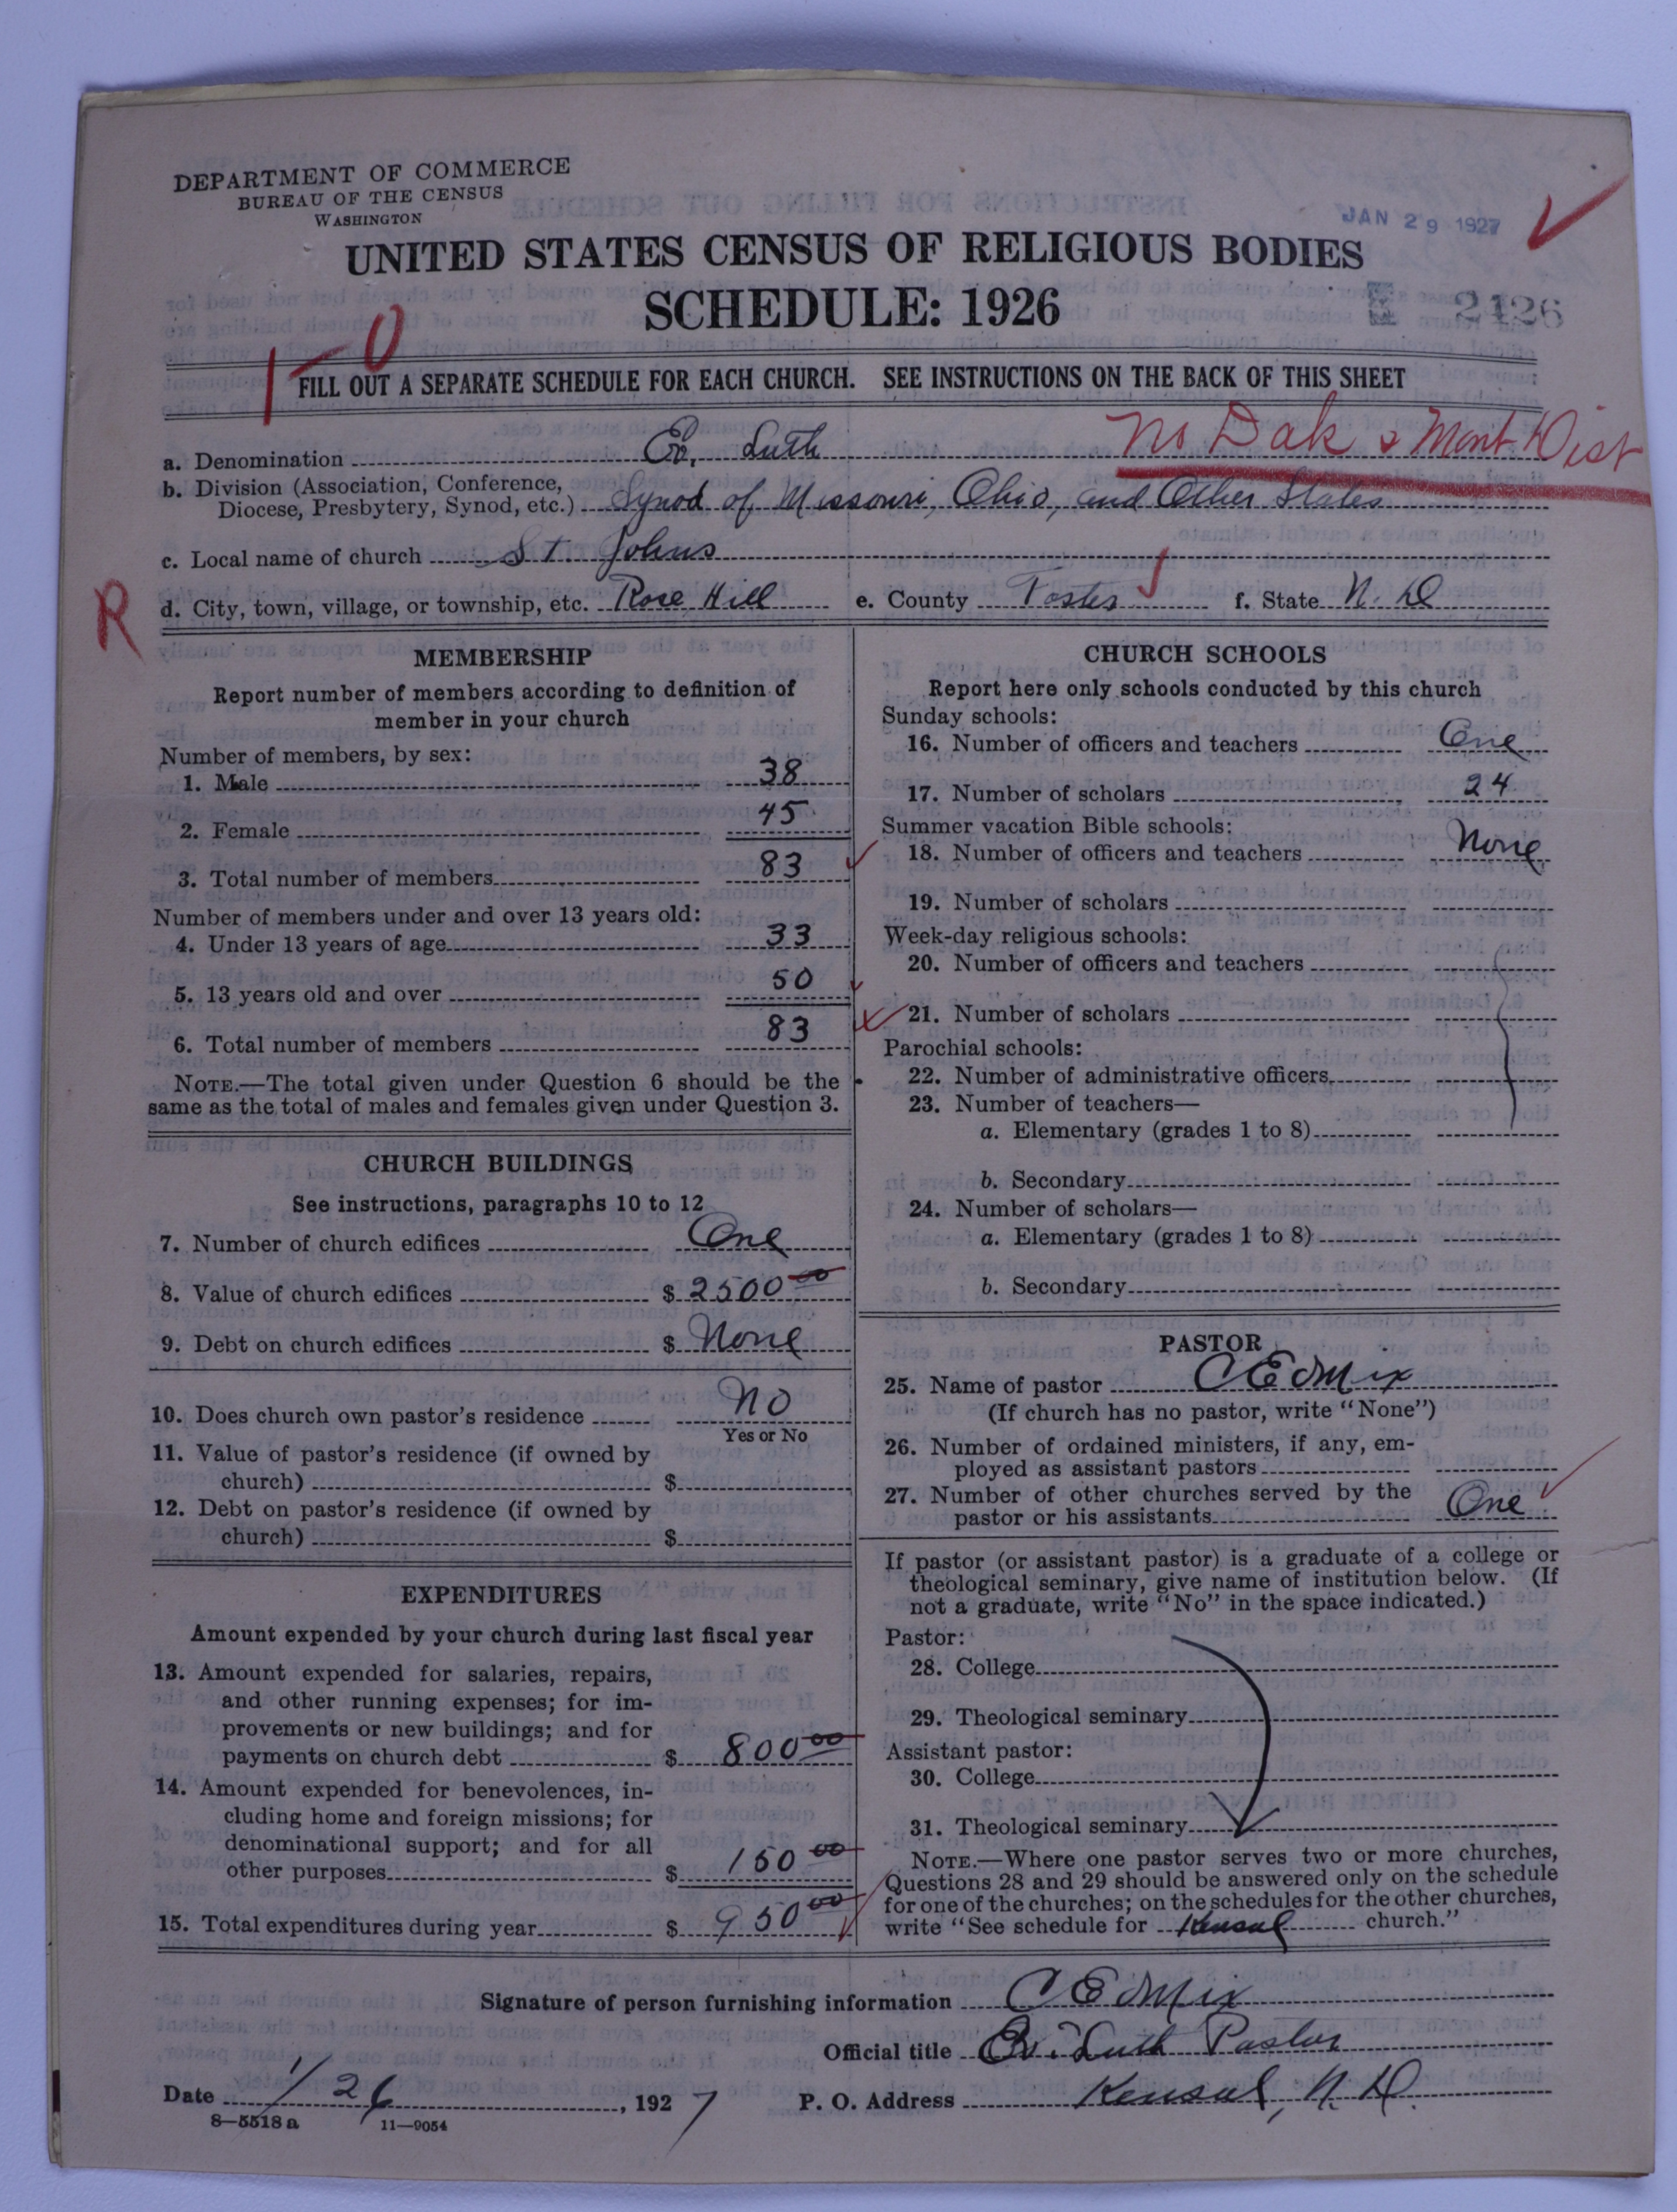 DEPARTMENT OF COMMERCE
BUREAU OF THE CENSUS
WASHINGTON
JAN 29 1927
UNITED STATES CENSUS OF RELIGIOUS BODIES
SCHEDULE: 1926
2426
1-0
FILL OUT A SEPARATE SCHEDULE FOR EACH CHURCH. SEE INSTRUCTIONS ON THE BACK OF THIS SHEET
No Dak & Mont Dist
a. Denomination Ev. Luth
b. Division (Association, Conference, Diocese, Presbytery, Synod, etc.) Synod of Missouri, Ohio, and Other States
c. Local name of church St. Johns
R
d. City, town, village, or township, etc. Rose Hill e. County Foster f. State N. D
MEMBERSHIP
Report number of members according to definition of
member in your church
Number of members, by sex:
1. Male 38
2. Female 45
3. Total number of members 83
Number of members under and over 13 years old:
4. Under 13 years of age 33
5. 13 years old and over 50
6. Total number of members 83
NOTE.—The total given under Question 6 should be the
same as the total of males and females given under Question 3.
CHURCH BUILDINGS
See instructions, paragraphs 10 to 12
7. Number of church edifices One
8. Value of church edifices $ 2500 00
9. Debt on church edifices $ None
10. Does church own pastor's residence No
Yes or No
11. Value of pastor's residence (if owned by
church) $
12. Debt on pastor's residence (if owned by
church) $
EXPENDITURES
Amount expended by your church during last fiscal year
13. Amount expended for salaries, repairs,
and other running expenses; for im-
provements or new buildings; and for
payments on church debt $ 800 00
14. Amount expended for benevolences, in-
cluding home and foreign missions; for
denominational support; and for all
other purposes $ 150 00
15. Total expenditures during year $ 950 00
CHURCH SCHOOLS
Report here only schools conducted by this church
Sunday schools:
16. Number of officers and teachers One
17. Number of scholars 24
Summer vacation Bible schools:
18. Number of officers and teachers None
19. Number of scholars
Week-day religious schools:
20. Number of officers and teachers
21. Number of scholars
Parochial schools:
22. Number of administrative officers
23. Number of teachers—
a. Elementary (grades 1 to 8)
b. Secondary
24. Number of scholars—
a. Elementary (grades 1 to 8)
b. Secondary
PASTOR
25. Name of pastor C E Mix
(If church has no pastor, write "None")
26. Number of ordained ministers, if any, em-
ployed as assistant pastors
27. Number of other churches served by the
pastor or his assistants One
If pastor (or assistant pastor) is a graduate of a college or
theological seminary, give name of institution below. (If
not a graduate, write "No" in the space indicated.)
Pastor:
28. College
29. Theological seminary
Assistant pastor:
30. College
31. Theological seminary
NOTE.—Where one pastor serves two or more churches,
Questions 28 and 29 should be answered only on the schedule
for one of the churches; on the schedules for the other churches,
write "See schedule for Kensal church."
Signature of person furnishing information C E Mix
Official title Ev. Luth Pastor
Date 1/26, 1927 P. O. Address Kensal, N. D.
8—5518 a 11—9054